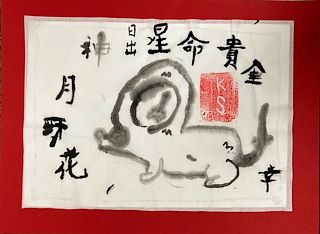 神 日出 星 命 貴 金
月
花
幸
KS